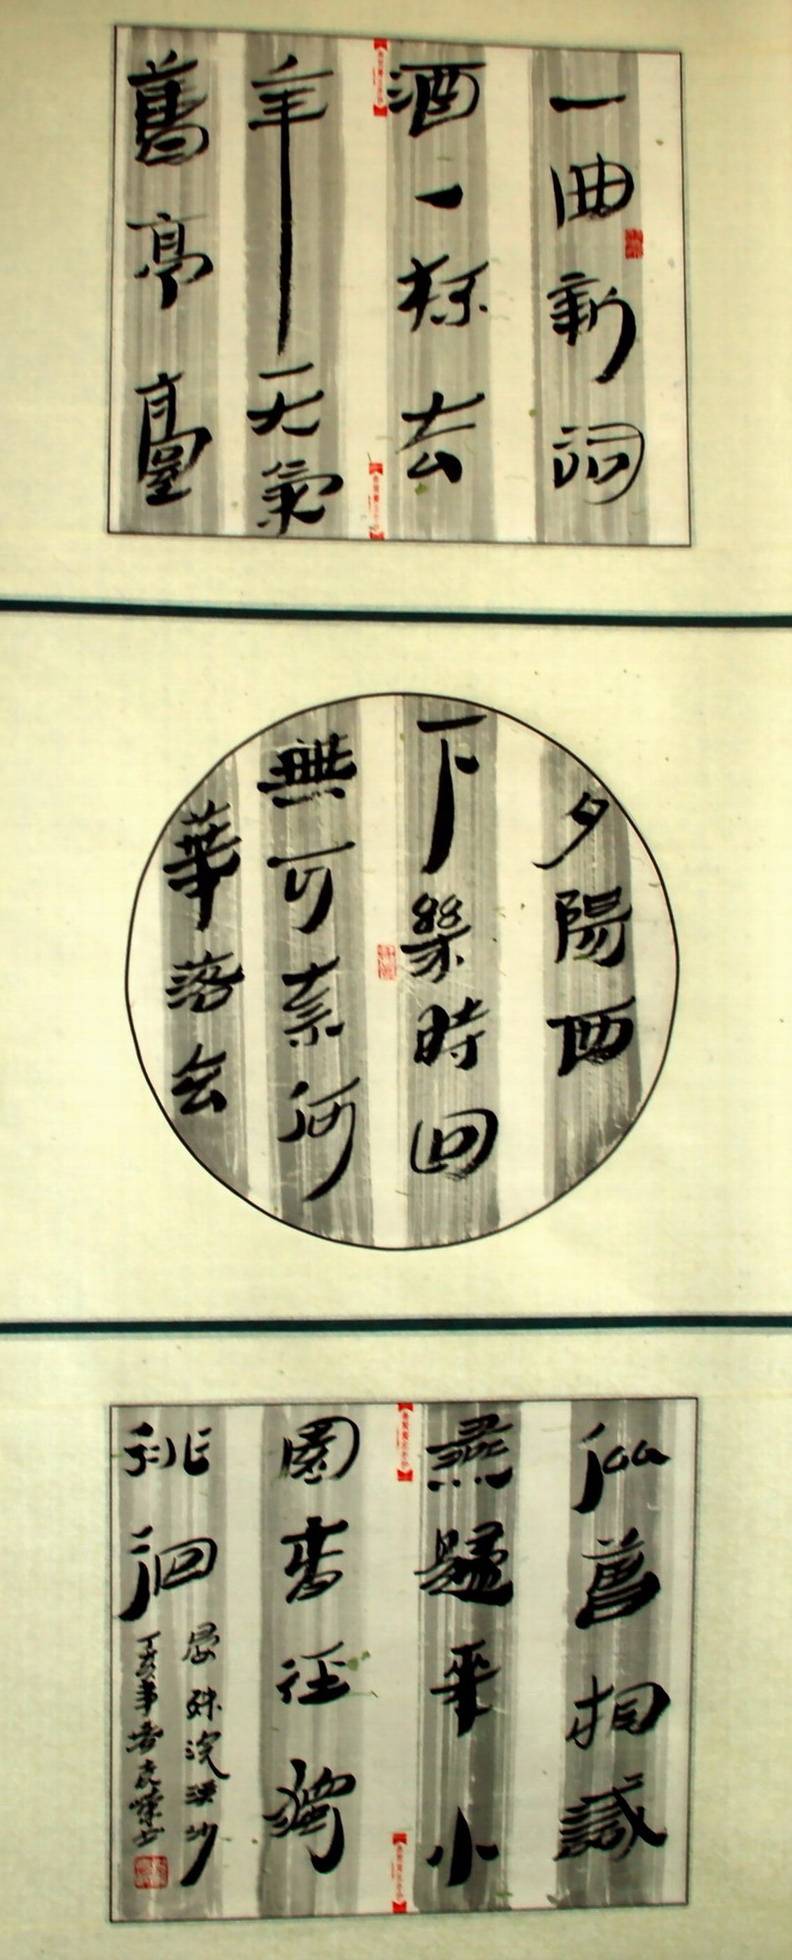 一曲新詞
酒一杯去
年天氣
舊亭臺
夕陽西
下幾時回
無可奈何
華落去
似曾相識
燕歸來小
園香徑獨
徘徊
晏殊浣溪沙
丁亥年春克